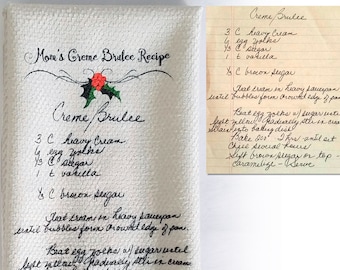 Mom's Creme Brulee Recipe
Creme/Brulee
3 C heavy cream
6 egg yolks
⅓ C sugar
1 t vanilla
⅓ C brown sugar
Heat cream in heavy saucepan
until bubbles form around edge of pan.
Beat egg yolks w/ sugar until
light yellow. Gradually stir in cream
Creme/Brulee
3 C heavy cream
6 egg yolks
⅓ C sugar
1 t vanilla
⅓ C brown sugar
Heat cream in heavy saucepan
until bubbles form around edge of pan.
Beat egg yolks w/ sugar until
light yellow. Gradually stir in cream
Strain into baking dish
Bake 325° 1 hr until set
Chill several hours
Sift brown sugar on top -
Caramelize - Serve